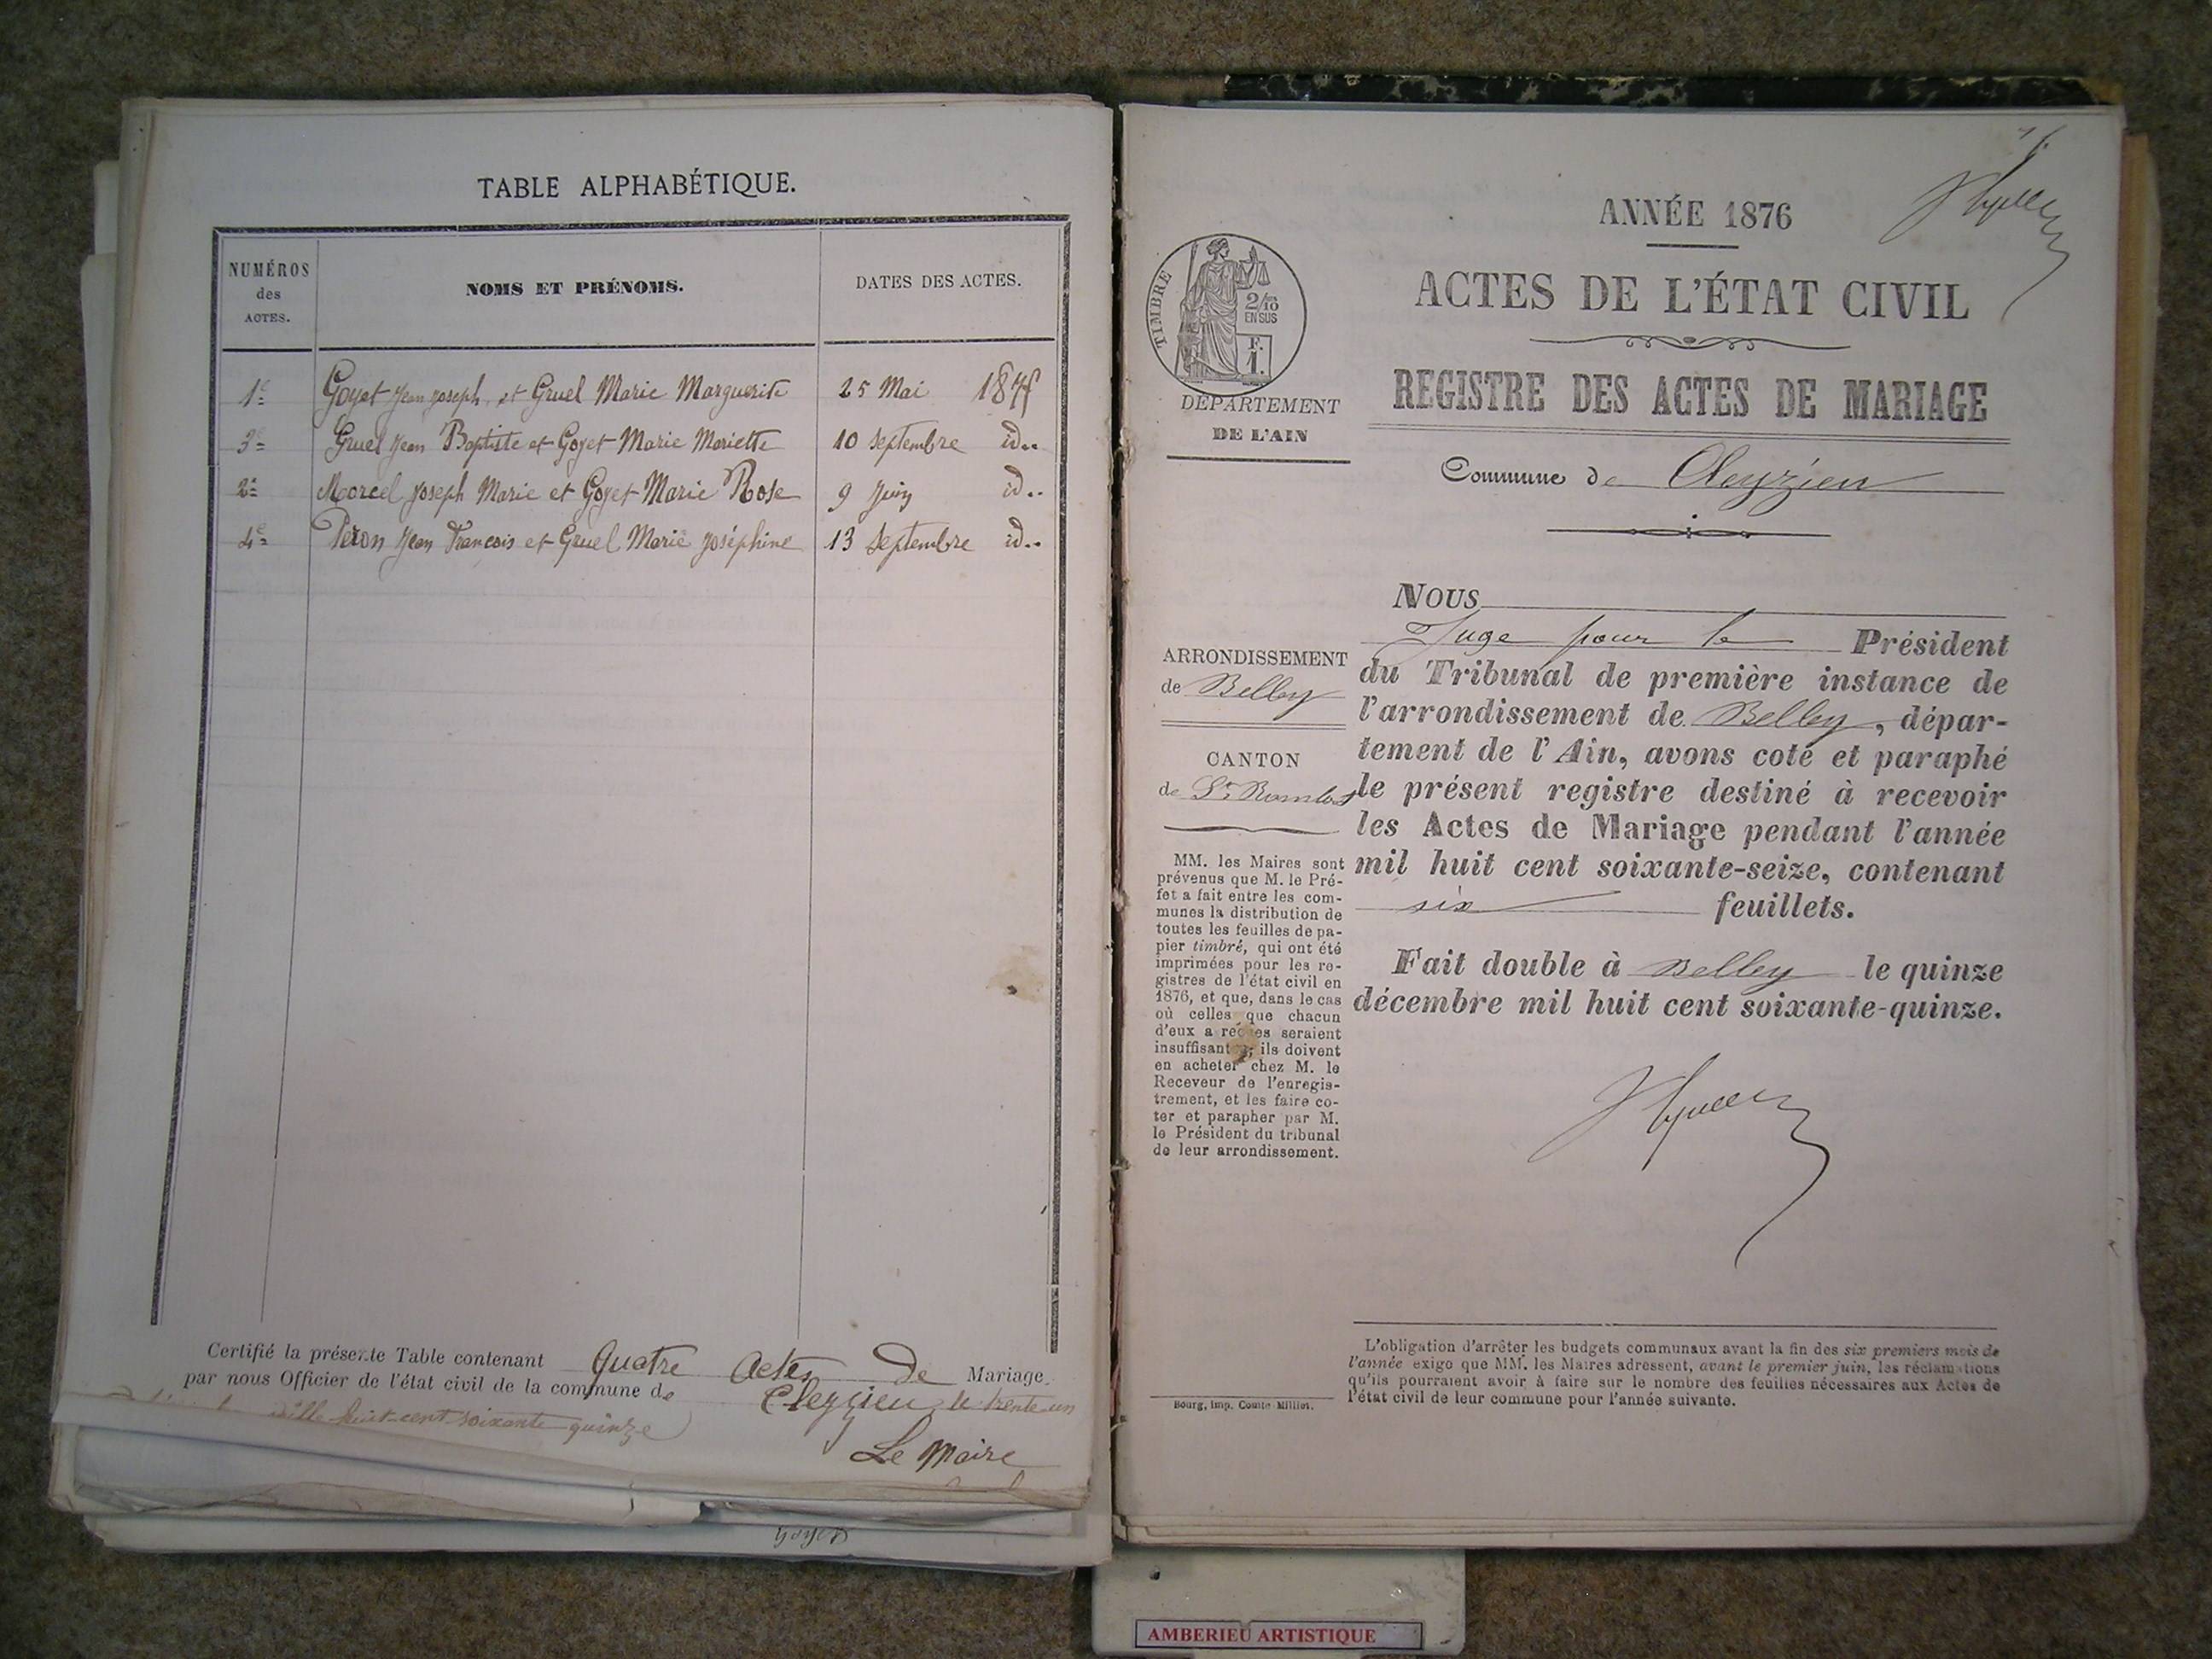 TABLE ALPHABÉTIQUE.
NUMÉROS des ACTES.
NOMS ET PRÉNOMS.
DATES DES ACTES.
1e Goyet Jean Joseph et Gruel Marie Marguerite 25 Mai 1875
3e Gruel Jean Baptiste et Goyet Marie Mariette 10 Septembre id..
2e Marcel Joseph Marie et Goyet Marie Rose 9 Juin id..
4e Péron Jean François et Gruel Marie Joséphine 13 Septembre id..
Certifié la présente Table contenant Quatre Actes De Mariage
par nous Officier de l'état civil de la commune de Cleyzieu, le trente un
mille huit cent soixante quinze
Le Maire
Goyet
ANNÉE 1876
TIMBRE
2/10 EN SUS
F. 1.
ACTES DE L'ÉTAT CIVIL
REGISTRE DES ACTES DE MARIAGE
DÉPARTEMENT
DE L'AIN
Commune de Cleyzieu
NOUS
Juge pour le Président
du Tribunal de première instance de
l'arrondissement de Belley, dépar-
tement de l'Ain, avons coté et paraphé
le présent registre destiné à recevoir
les Actes de Mariage pendant l'année
mil huit cent soixante-seize, contenant
six feuillets.
Fait double à Belley le quinze
décembre mil huit cent soixante-quinze.
ARRONDISSEMENT
de Belley
CANTON
de St Rambert
MM. les Maires sont
prévenus que M. le Pré-
fet a fait entre les com-
munes la distribution de
toutes les feuilles de pa-
pier timbré, qui ont été
imprimées pour les re-
gistres de l'état civil en
1876, et que, dans le cas
où celles que chacun
d'eux a reçues seraient
insuffisantes, ils doivent
en acheter chez M. le
Receveur de l'enregis-
trement, et les faire co-
ter et parapher par M.
le Président du tribunal
de leur arrondissement.
L'obligation d'arrêter les budgets communaux avant la fin des six premiers mois de
l'année exige que MM. les Maires adressent, avant le premier juin, les réclamations
qu'ils pourraient avoir à faire sur le nombre des feuilles nécessaires aux Actes de
l'état civil de leur commune pour l'année suivante.
Bourg, imp. Comte-Milliet.
AMBERIEU ARTISTIQUE